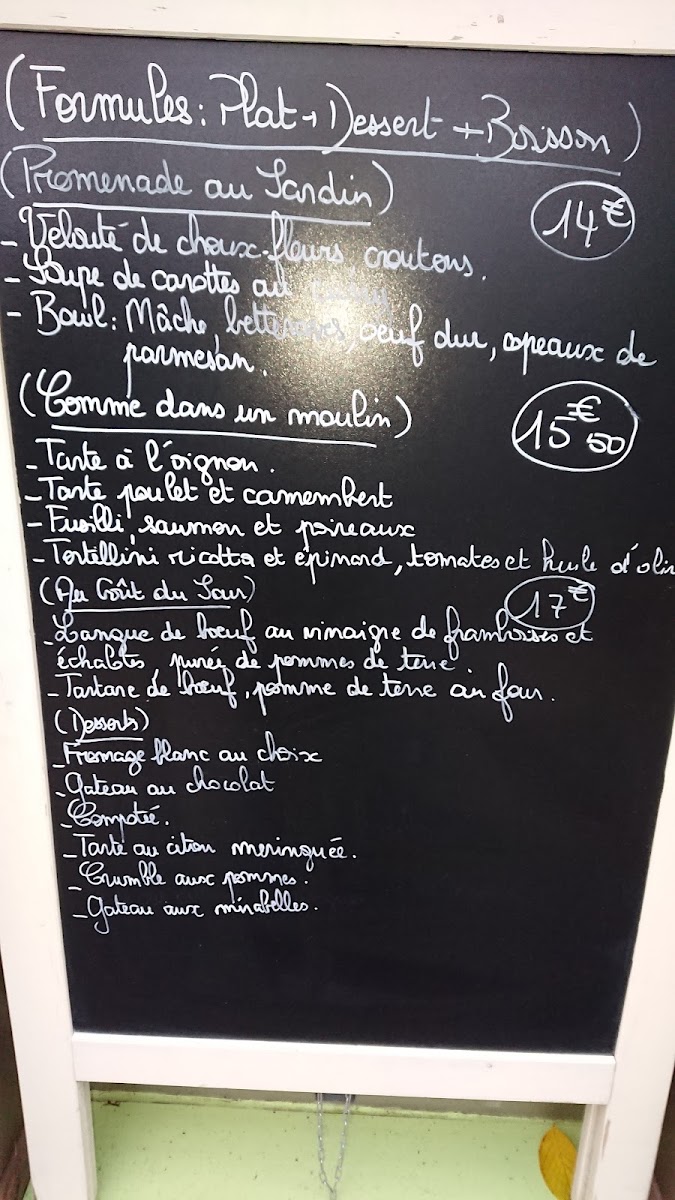 (Formules: Plat + Dessert + Boisson)
(Promenade au Jardin)
14€
- Velouté de choux-fleurs, croutons.
- Soupe de carottes au
- Bowl: Mâche betteraves, oeuf dur, copeaux de
parmesan.
(Comme dans un moulin)
15€50
- Tarte à l'oignon.
- Tarte poulet et camembert
- Fusilli, saumon et poireaux
- Tortellini ricotta et épinard, tomates et huile d'oliv
(Au Goût du Jour)
17€
- Langue de boeuf au vinaigre de framboises et
échalotes, purée de pommes de terre.
- Tartare de boeuf, pomme de terre au four.
(Desserts)
- Fromage blanc au choix
- Gateau au chocolat
- Compotée.
- Tarte au citron meringuée.
- Crumble aux pommes.
- Gateau aux mirabelles.